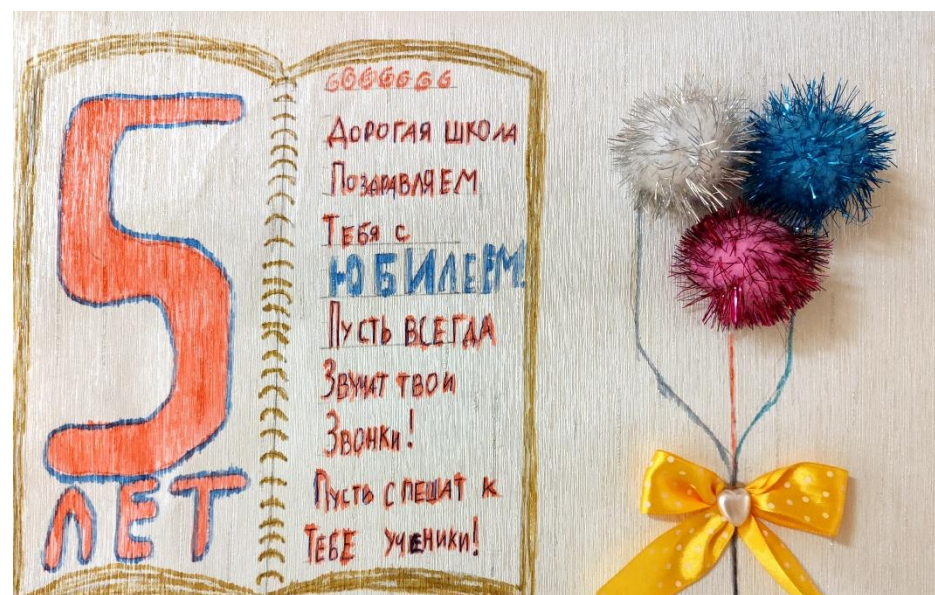 5
ЛЕТ
6666666
ДОРОГАЯ ШКОЛА
ПОЗДРАВЛЯЕМ
ТЕБЯ С
ЮБИЛЕЕМ!
ПУСТЬ ВСЕГДА
ЗВУЧАТ ТВОИ
ЗВОНКИ!
ПУСТЬ СПЕШАТ К
ТЕБЕ УЧЕНИКИ!